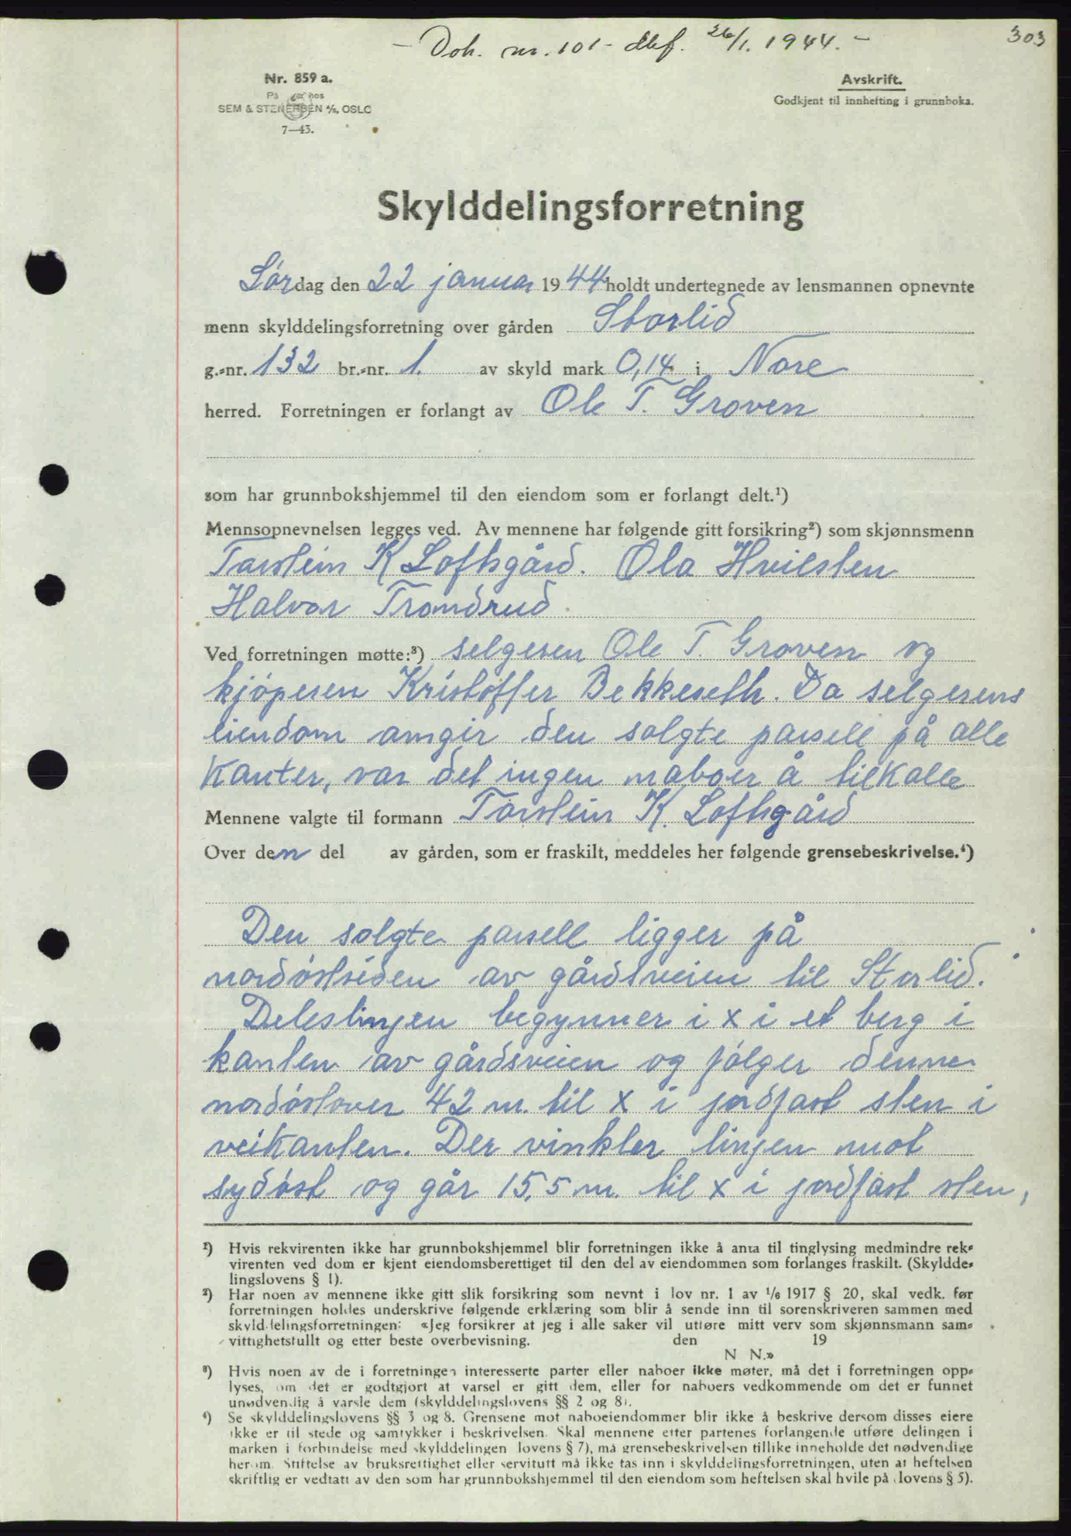 - Dok. nr. 101 - dbf. 26/1. 1944. -
303
Nr. 859 a.
SEM & STENERSEN A/S, OSLO
7—43.
Avskrift.
Godkjent til innhefting i grunnboka.
Skylddelingsforretning
Lørdag den 22 januar 1944 holdt undertegnede av lensmannen opnevnte
menn skylddelingsforretning over gården Storlid
g.-nr. 132 br.-nr. 1. av skyld mark 0,14 i Nore
herred. Forretningen er forlangt av Ole T. Groven
som har grunnbokshjemmel til den eiendom som er forlangt delt.¹)
Mennsopnevnelsen legges ved. Av mennene har følgende gitt forsikring²) som skjønnsmenn
Torstein K Lofthsgård. Ola Hvilsten
Halvor Trondrud.
Ved forretningen møtte:³) selgeren Ole T. Groven og
kjøperen Kristoffer Bekkeseth. Da selgerens
eiendom omgir den solgte parsell på alle
kanter, var det ingen naboer å tilkalle
Mennene valgte til formann Torstein K. Lofthsgård
Over den del av gården, som er fraskilt, meddeles her følgende grensebeskrivelse.⁴)
Den solgte parsell ligger på
nordøstsiden av gårdsveien til Storlid.
Deleslinjen begynner i x i et berg i
kanten av gårdsveien og følger denne
nordøstover 42 m. til x i jordfast sten i
veikanten. Der vinkler linjen mot
sydøst og går 15,5 m. til x i jordfast sten,
¹) Hvis rekvirenten ikke har grunnbokshjemmel blir forretningen ikke å anta til tinglysing medmindre rek-
virenten ved dom er kjent eiendomsberettiget til den del av eiendommen som forlanges fraskilt. (Skyldde-
lingslovens § 1).
²) Har noen av mennene ikke gitt slik forsikring som nevnt i lov nr. 1 av 1/6 1917 § 20, skal vedk. før
forretningen holdes underskrive følgende erklæring som blir å sende inn til sorenskriveren sammen med
skylddelingsforretningen: «Jeg forsikrer at jeg i alle saker vil utføre mitt verv som skjønnsmann sam-
vittighetsfullt og etter beste overbevisning. den 19
N. N.»
³) Hvis noen av de i forretningen interesserte parter eller naboer ikke møter, må det i forretningen opp-
lyses, om det er godtgjort at varsel er gitt dem, eller for naboers vedkommende om det er funnet
unødvendig å varsle dem (skylddelingslovens §§ 2 og 8).
⁴) Se skylddelingslovens §§ 3 og 8. Grensene mot naboeiendommer blir ikke å beskrive dersom disses eiere
ikke er til stede og samtykker i beskrivelsen. Skal mennene etter partenes forlangende utføre delingen i
marken i forbindelse med skylddelingen (lovens § 7), må grensebeskrivelsen tillike inneholde det nødvendige
herom. Stiftelse av bruksrettighet eller servitutt må ikke tas inn i skylddelingsforretningen, uten at heftelsen
skriftlig er vedtatt av den som har grunnbokshjemmel til den eiendom som heftelsen skal hvile på (lovens § 5).